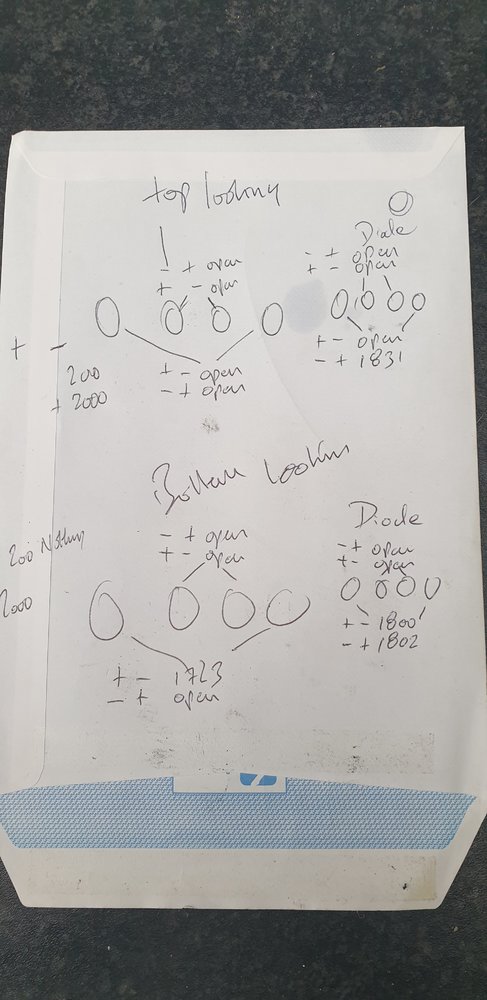 top looking
Diode
- + open
+ - open
- + open
+ - open
+ -
200
+ 2000
+ - open
- + open
+ - open
- + 1831
Bottom Looking
200 Nothing
2000
- + open
+ - open
Diode
- + open
+ - open
+ - 1723
- + open
+ - 1800
- + 1802